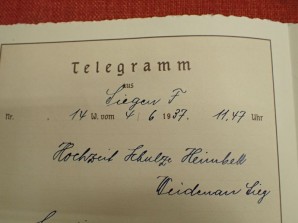 Telegramm
aus
Siegen F
Nr. 14 W. vom 4 6 1937. 11,47 Uhr
Hochzeit Schulze Heimbell
Weidenau Sieg